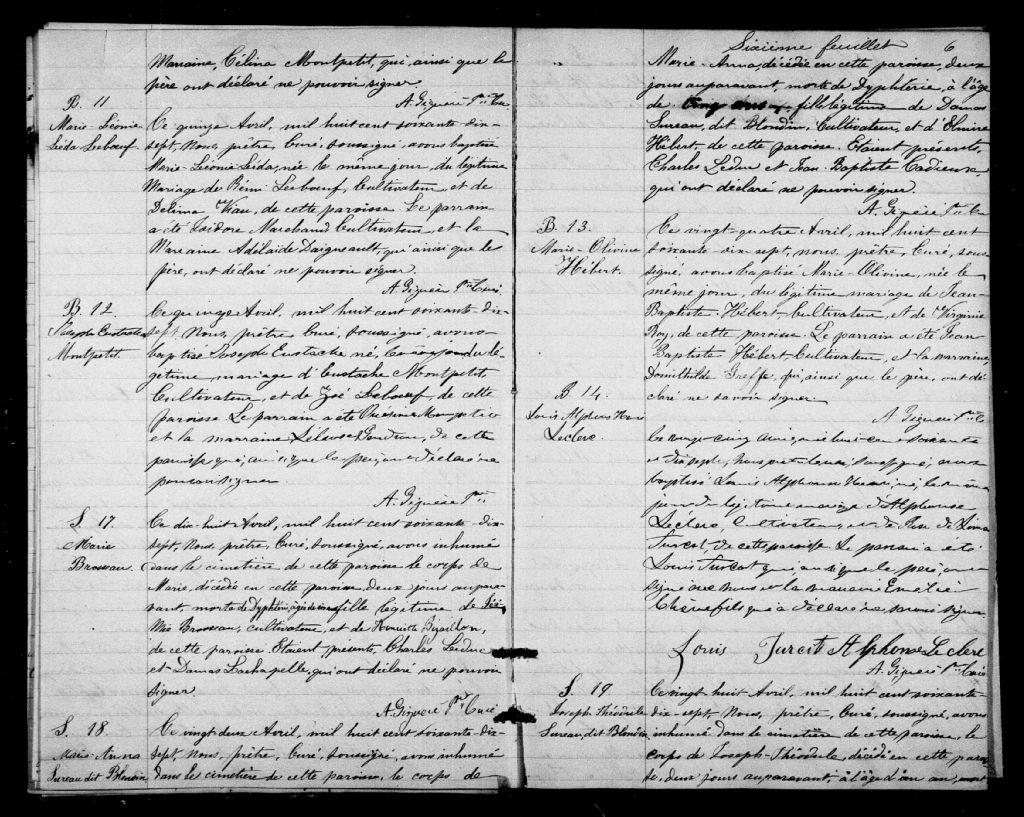 Marraine, Célina Montpetit, qui, ainsi que le
père ont déclaré ne pouvoir signer.
A. Giguère Ptre Curé
B. 11
Marie-Léonie
Léda Leboeuf.
Ce quinze Avril, mil huit cent soixante-dix-
sept, Nous, prêtre, Curé, soussigné, avons baptisé
Marie-Léonie Léda, née le même jour, du légitime
Mariage de Rémi Leboeuf, Cultivateur, et de
Délima Viau, de cette paroisse. Le parrain
a été Isidore Marchand Cultivateur, et la
Marraine Adélaide Daigneault, qui ainsi que le
père, ont déclaré ne pouvoir signer.
A. Giguère Ptre Curé.
B. 12.
Joseph Eustache
Montpetit.
Ce quinze Avril, mil huit cent soixante-dix-
sept, Nous, prêtre, Curé, soussigné, avons
baptisé Joseph Eustache né, ce du lé-
gitime mariage d'Eustache Montpetit
Cultivateur, et de Zoé Leboeuf, de cette
paroisse. Le parrain a été Onésime
et la marraine Gendron, de cette
paroisse qui, ainsi que le père, ont déclaré ne
pouvoir signer
A. Giguère Ptre
S. 17
Marie
Brosseau.
Ce dix-huit Avril, mil huit cent soixante-dix-
sept, Nous, prêtre, Curé, soussigné, avons inhumé
dans le cimetière de cette paroisse le corps de
Marie, décédée en cette paroisse, deux jours aupara-
vant, morte de Dyphtérie, fille légitime de
Brosseau, cultivateur, et de Henriette Bisaillon,
de cette paroisse. Etaient présents, Charles Leduc
et Damas Lachapelle, qui ont déclaré ne pouvoir
signer.
A. Giguère Ptre Curé
S. 18
Marie-Anna
Sureau dit Blondin
Ce vingt deux Avril, mil huit cent soixante-dix-
sept, Nous, prêtre, Curé, soussigné, avons inhumé
dans le cimetière de cette paroisse, le corps de
Sixième feuillet 6
Marie-Anna, décédée en cette paroisse, deux
jours auparavant, morte de Dyphtérie, à l'âge
de fille légitime de Damas
Sureau, dit Blondin, Cultivateur, et d'Elmire
Hébert, de cette paroisse. Etaient présents,
Charles Leduc et Jean-Baptiste Cadieux
qui ont déclaré ne pouvoir signer.
A. Giguère Ptre Cu
B. 13.
Marie-Olivine
Hébert.
Ce vingt-quatre Avril, mil huit cent
soixante-dix-sept, nous, prêtre, Curé, sous-
signé, avons baptisé Marie-Olivine, née le
même jour, du légitime mariage de Jean-
Baptiste Hébert Cultivateur, et de Virginie
Roy, de cette paroisse. Le parrain a été Jean
Baptiste Hébert Cultivateur, et la marraine,
Domithilde Greffe, qui, ainsi que le père, ont dé-
claré ne savoir signer.
A Giguère Ptre C
B. 14.
Louis Alphonse
Leclerc.
Ce vingt-cinq Avril, mil huit cent soixante
et dix sept, Nous prêtre curé, soussigné, avons
baptisé Louis Alphonse né le même
jour du légitime mariage d'Alphonse
Leclerc, Cultivateur, et de Rose de Lima
Turcot, de cette paroisse Le parrain a été
Louis Turcot qui ainsi que le père, ont
signé avec nous et la marraine
Chèvrefils qui a déclaré ne savoir signer
Louis Turcot Alphonse Leclerc
A. Giguère Ptre Curé
S. 19.
Joseph Théodule
Sureau, dit Blondin
Ce vingt huit Avril, mil huit cent soixante-
dix-sept, Nous, prêtre, Curé, soussigné, avons
inhumé dans le cimetière de cette paroisse, le
corps de Joseph-Théodule, décédé en cette parois-
se, deux jours auparavant, à l'âge d'un an, mort